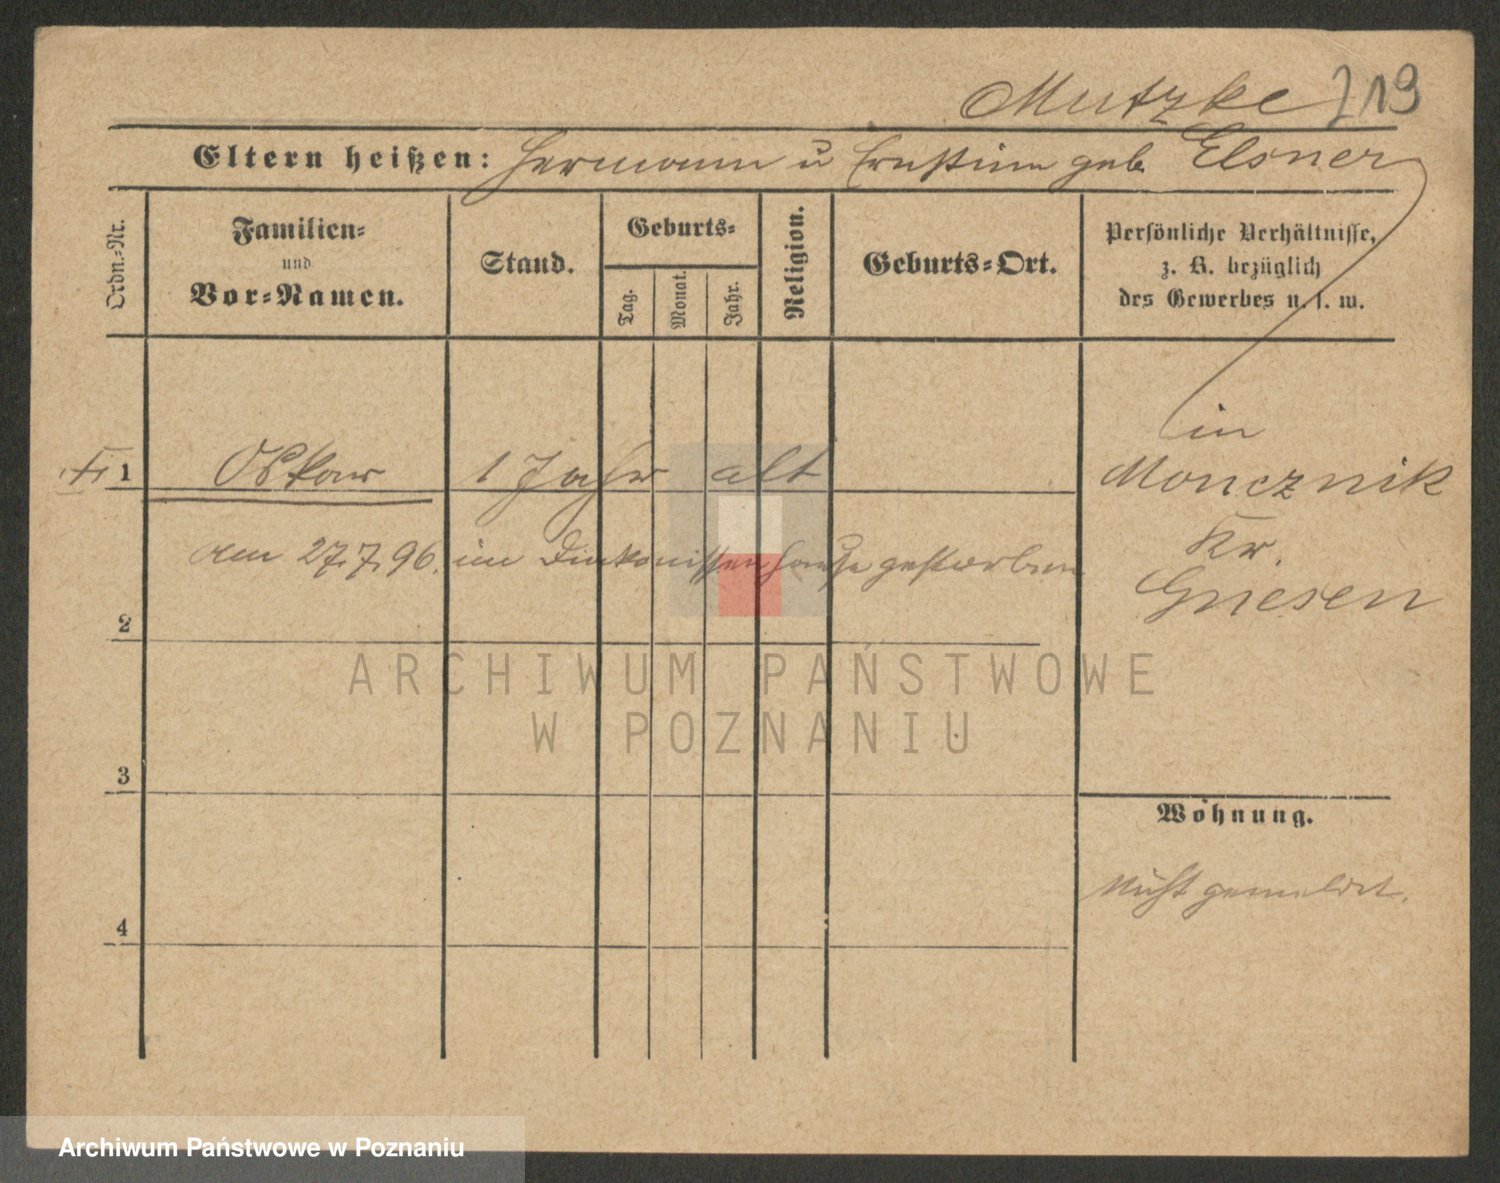 Mutzke 719
Eltern heißen: Hermann u Ernstine geb Elsner
Ordn.-Nr.
Familien-
und
Vor-Namen.
Stand.
Geburts-
Tag.
Monat.
Jahr.
Religion.
Geburts-Ort.
Persönliche Verhältnisse,
z. B. bezüglich
des Gewerbes u. s. w.
in
1 Oskar 1 Jahr alt
Moncznik
Kr.
Gnesen
am 27.7.96. im Diakonissenhause gestorben
2
3
4
Wohnung.
Nicht gemeldet.
ARCHIWUM PAŃSTWOWE
W POZNANIU
Archiwum Państwowe w Poznaniu